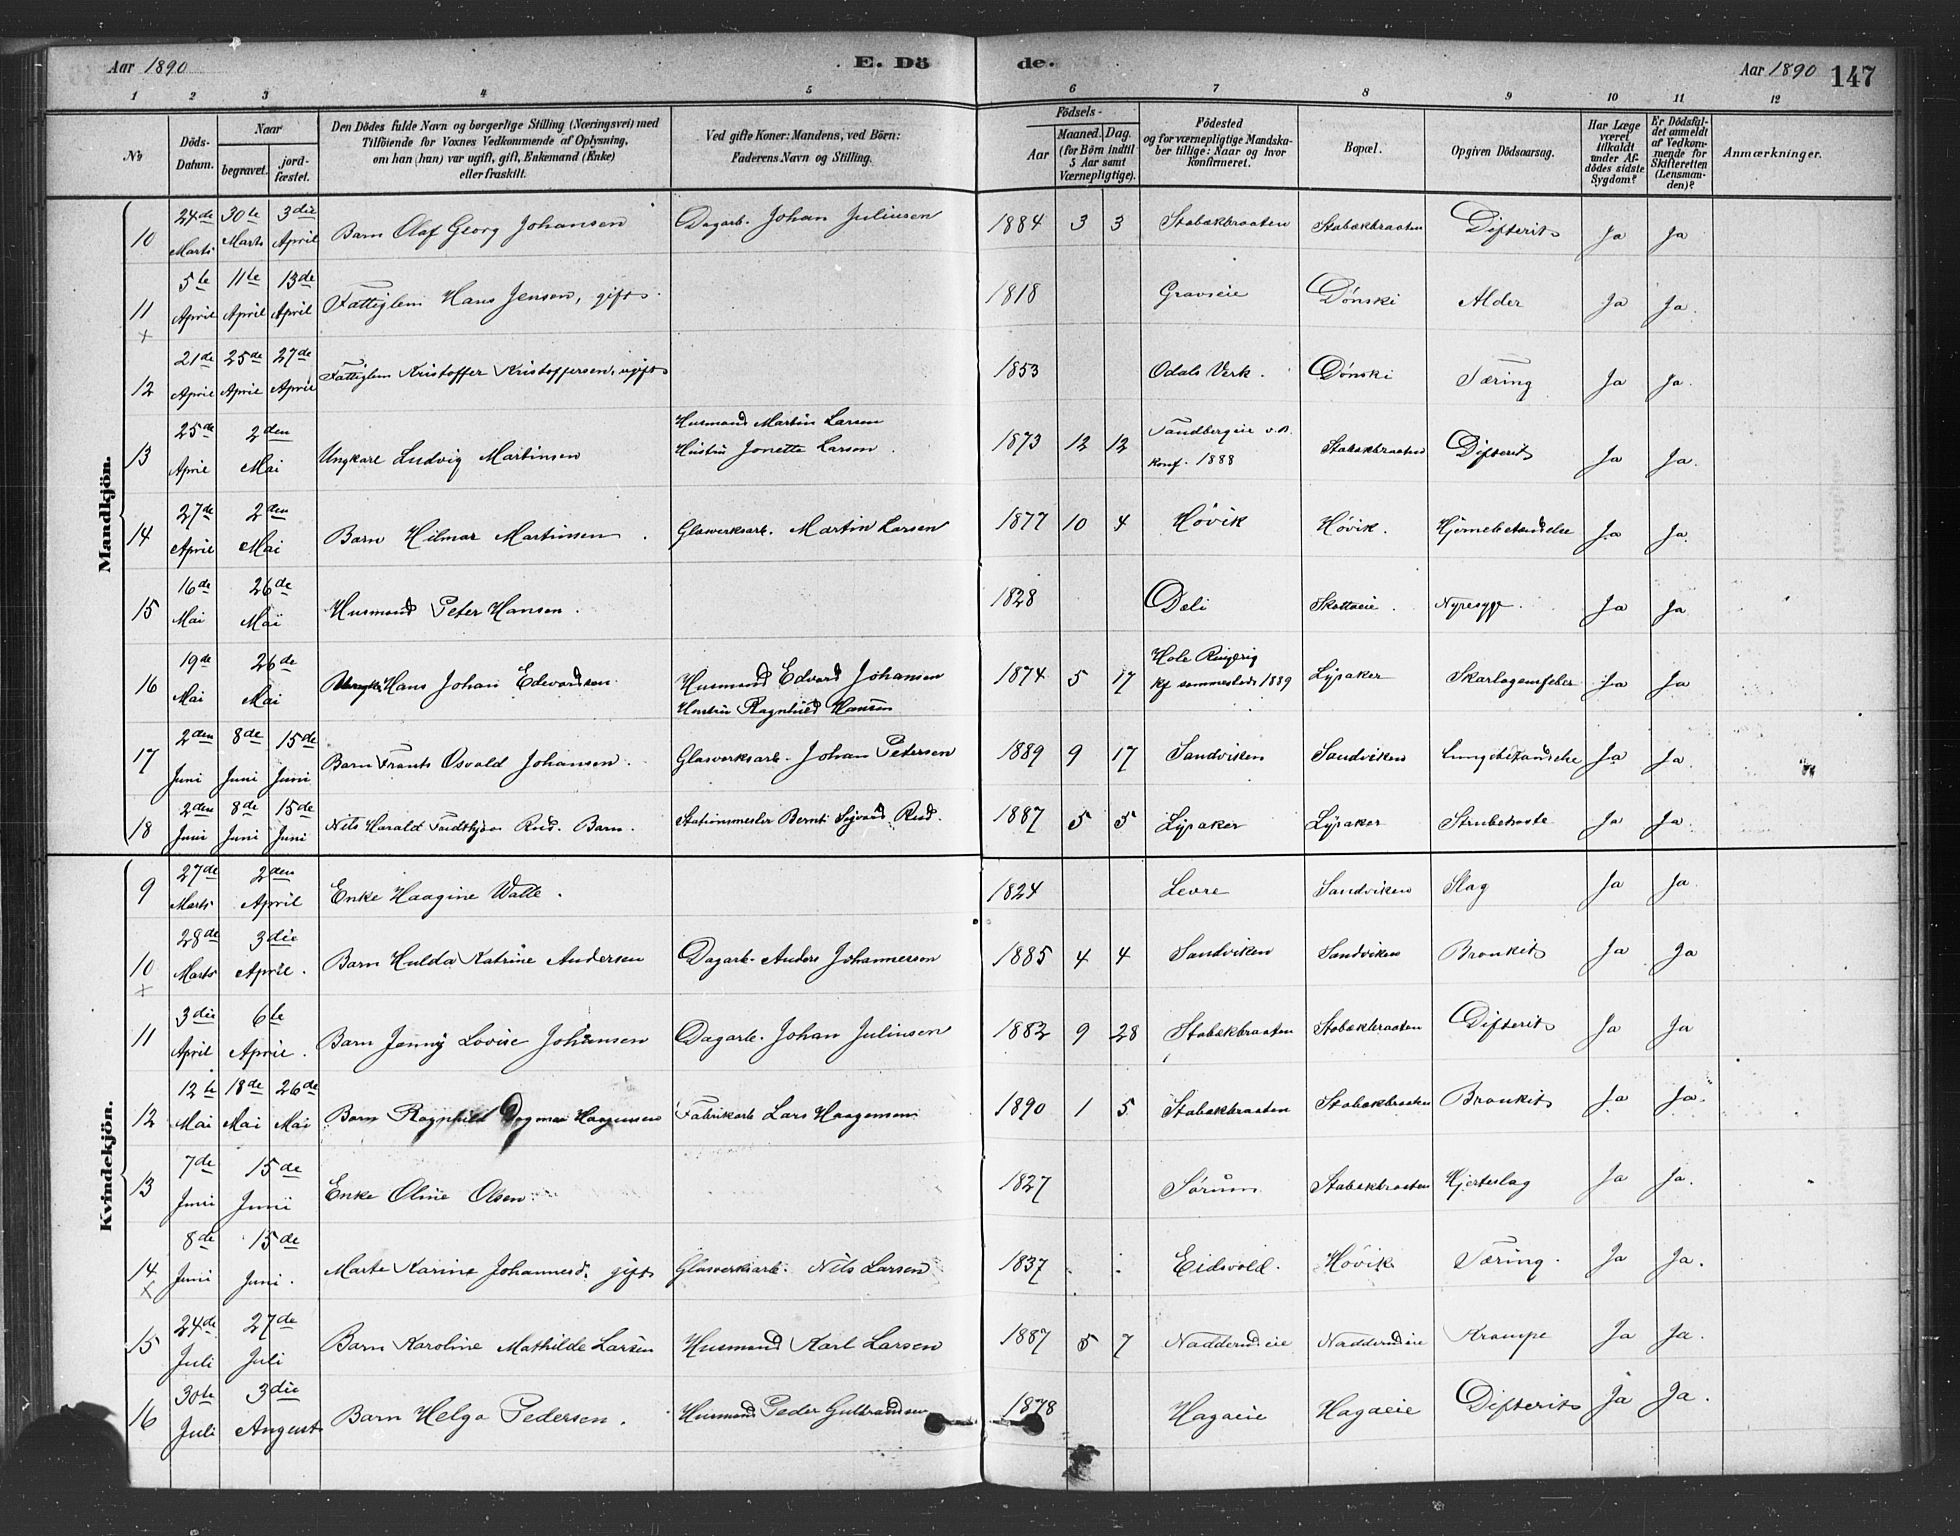 Aar 1890 E. Dö de. Aar 1890 147
1 2 3 4 5 6 7 8 9 10 11 12
No
Döds-Datum.
Naar
begravet.
jord-fæstet.
Den Dödes fulde Navn og borgerlige Stilling (Næringsvei) med
Tilföiende for Voxnes Vedkommende af Oplysning,
om han (hun) var ugift, gift, Enkemand (Enke)
eller fraskilt.
Ved gifte Koner: Mandens, ved Börn:
Faderens Navn og Stilling.
Födsels-
Aar
Maaned. Dag.
(for Börn indtil
5 Aar samt
Værnepligtige).
Födested
og for værnepligtige Mandska-
ber tillige: Naar og hvor
konfirmeret.
Bopæl.
Opgiven Dödsaarsag.
Har Læge
været
tilkaldt
under Af-
dödes sidste
Sygdom?
Er Dödsfal-
det anmeldt
af Vedkom-
mende for
Skifteretten
(Lensman-
den)?
Anmærkninger.
Mandkjön.
10 24de Marts 30te Marts 3die April Barn Olaf Georg Johansen Dagarb. Johan Juliusen 1884 3 3 Stabækbraaten Stabækbraaten Difterit Ja Ja
11 x 5te April 11te April 13de April Fattiglem Hans Jensen, gift. 1818 Gravseie Dønski Alder Ja Ja.
12 21de April 25de April 27de April Fattiglem Kristoffer Kristoffersen, ugift 1853 Odals Verk. Dønski Tæring Ja Ja.
13 25de April 2den Mai Ungkarl Ludvig Martinsen Husmand Martin Larsen
Hustru Jonette Larsen. 1873 12 12 Tandbergeie v.B.
konf. 1888 Stabækbraaten Difterit Ja Ja.
14 27de April 2den Mai Barn Hilmar Martinsen. Glasverksarb. Martin Larsen 1877 10 4 Høvik Høvik. Hjernebetændelse Ja Ja.
15 16de Mai 26de Mai Husmand Peter Hansen. 1828 Dæli Skottaeie. Nyresyge. Ja Ja
16 19de Mai 26de Mai Hans Johan Edvardsen. Husmand Edvard Johansen
Hustru Ragnhild Hansen 1874 5 17 Hole Ringerig
kf sammesteds 1889 Lysaker Skarlagensfeber Ja Ja
17 2den Juni 8de Juni 15de Juni Barn Frants Osvald Johansen. Glasverksarb. Johan Petersen 1889 9 17 Sandviken Sandviken Lungebetændelse Ja Ja.
18 2den Juni 8de Juni 15de Juni Nils Harald Rud. Barn. Stationsmester Bernt Sigvard Rud. 1887 5 5 Lysaker Lysaker Strubehoste Ja Ja.
Kvindekjön.
9 27de Marts 2den April Enke Haagine Walle. 1824 Levre Sandviken Slag Ja Ja.
10 x 28de Marts 3die April. Barn Hulda Katrine Andersen Dagarb. Anders Johannersen 1885 4 4 Sandviken Sandviken Bronkit Ja Ja
11 3die April 6te April. Barn Jenny Lovise Johansen Dagarb. Johan Juliusen 1882 9 28 Stabækbraaten Stabækbraaten Difterit Ja Ja
12 12te Mai 18de Mai 26de Mai Barn Ragnhild Dagmar Haagensen Fabrikarb Lars Haagensen 1890 1 5 Stabækbraaten Stabækbraaten Bronkit Ja Ja.
13 7de Juni 15de Juni Enke Oline Olsen. 1827 Sørum Stabækbraaten Hjerteslag Ja Ja.
14 x 8de Juni 15de Juni. Marte Karine Johannesd. gift Glasverksarb. Nils Larsen 1837 Eidsvold. Høvik Tæring. Ja Ja.
15 24de Juli 27de Juli Barn Karoline Mathilde Larsen Husmand Karl Larsen 1887 5 7 Nadderudeie Nadderudeie Krampe Ja Ja.
16 30te Juli 3die August Barn Helga Pedersen. Husmand Peder Gulbrandsen 1878 Hagaeie Hagaeie Difterit Ja Ja.